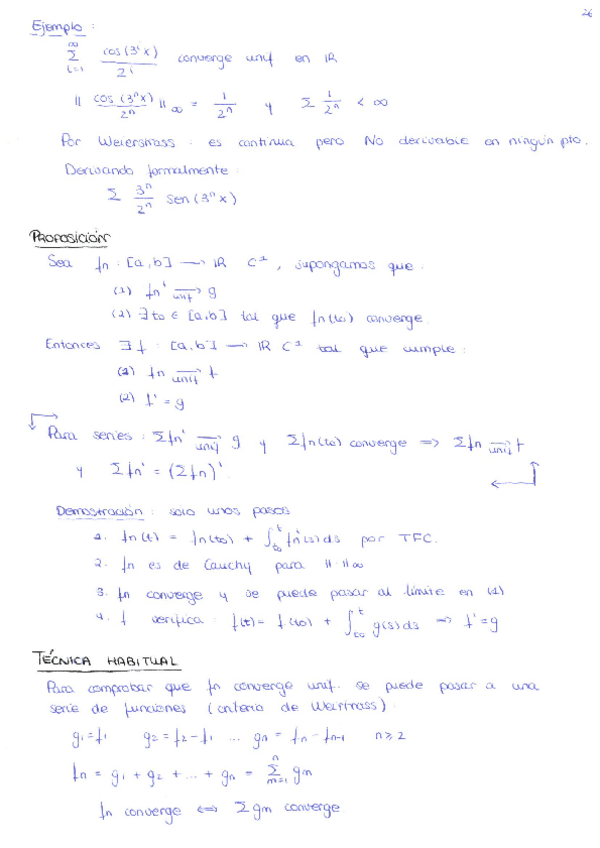 26
Ejemplo :
∞ Σ i=1 cos(3ⁱx) / 2ⁱ converge unif en IR
|| cos(3ⁿx) / 2ⁿ ||∞ = 1/2ⁿ y Σ 1/2ⁿ < ∞
Por Weierstrass : es continua pero No derivable en ningún pto.
Derivando formalmente :
Σ 3ⁿ/2ⁿ sen(3ⁿx)
PROPOSICIÓN
Sea fn : [a,b] → IR C¹, supongamos que :
(1) fn' →unif g
(2) ∃ to ∈ [a,b] tal que fn(to) converge.
Entonces ∃ f : [a,b] → IR C¹ tal que cumple :
(1) fn →unif f
(2) f' = g
Para series : Σfn' →unif g y Σfn(to) converge ⇒ Σfn →unif f
y Σfn' = (Σfn)'.
Demostración : solo unos pasos
1. fn(t) = fn(to) + ∫ₜₒᵗ fn'(s)ds por TFC.
2. fn es de Cauchy para ||·||∞
3. fn converge y se puede pasar al límite en (1)
4. f verifica : f(t) = f(to) + ∫ₜₒᵗ g(s)ds ⇒ f' = g
TÉCNICA HABITUAL
Para comprobar que fn converge unif. se puede pasar a una
serie de funciones (criterio de Weirtrass) :
g₁=f₁ g₂ = f₂-f₁ ... gn = fn - fn-1 n≥2
fn = g₁ + g₂ + ... + gn = Σ m=1 n gm
fn converge ⇔ Σ gm converge.